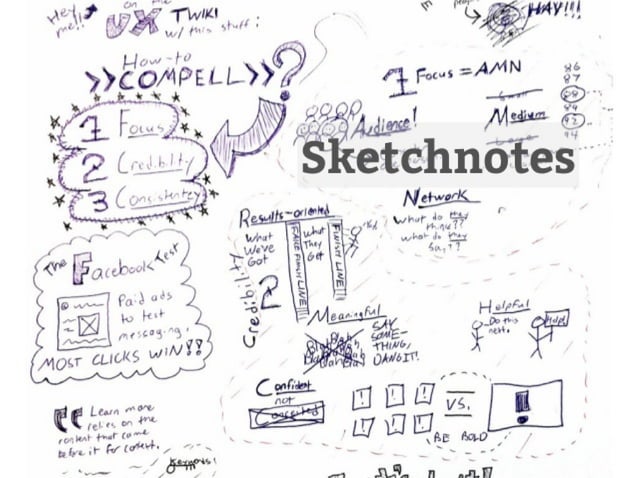 Hey me!!
on the
UX TWIKI
w/ this stuff:
HAY!!!
How-to
>>COMPELL>>?
1 Focus
2 Credibilty
3 Consistentcy
1 Focus = AMN
86
87
88
89
92
94
Audience!
Medium
Sketchnotes
Network
What do they
think??
what do they
say??
The Facebook Test
Paid ads
to test
messaging.
MOST CLICKS WIN!!
Credibility
2
Results-oriented
What
We've
Got
FAKE FINISH LINE!
What
They
Get
FINISH LINE!
Meaningful
Blah
Blah Blah
Blah Blah Blah
SAY
SOME-
THING,
DANGIT!
Helpful
Do this
next.
Help!
Confident
not
Conceited
! ! !
! ! !
VS.
!
BE BOLD
Learn more
relies on the
content that came
before it for context.
Keywords!